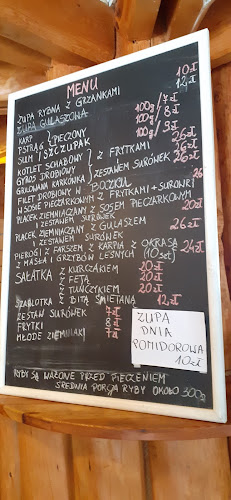 MENU
ZUPA RYBNA Z GRZANKAMI 10zł
ZUPA GULASZOWA 12zł
KARP } PIECZONY 100g/ 7zł
PSTRĄG 100g/ 8zł
SUM / SZCZUPAK 100g/ 9zł
KOTLET SCHABOWY } Z FRYTKAMI 26zł
GYROS DROBIOWY 26zł
GRILOWANA KARKÓWKA ZESTAWEM SURÓWEK 26zł
FILET DROBIOWY W BOCZKU 26
W SOSIE PIECZARKOWYM Z FRYTKAMI + SURÓWKI
PLACEK ZIEMNIACZANY Z SOSEM PIECZARKOWYM 20zł
I ZESTAWEM SURÓWEK
PLACEK ZIEMNIACZANY Z GULASZEM 26zł
I ZESTAWEM SURÓWEK
PIEROGI Z FARSZEM Z KARPIA Z OKRASĄ 24zł
Z MASŁA I GRZYBÓW LEŚNYCH (10szt)
SAŁATKA Z KURCZAKIEM 20zł
Z FETĄ 20zł
Z TUŃCZYKIEM 20zł
SZARLOTKA Z BITĄ ŚMIETANĄ 12zł
ZESTAW SURÓWEK 7zł
FRYTKI 8zł
MŁODE ZIEMNIAKI 7zł
ZUPA
DNIA
POMIDOROWA
10zł
RYBY SĄ WAŻONE PRZED PIECZENIEM
ŚREDNIA PORCJA RYBY OKOŁO 300g